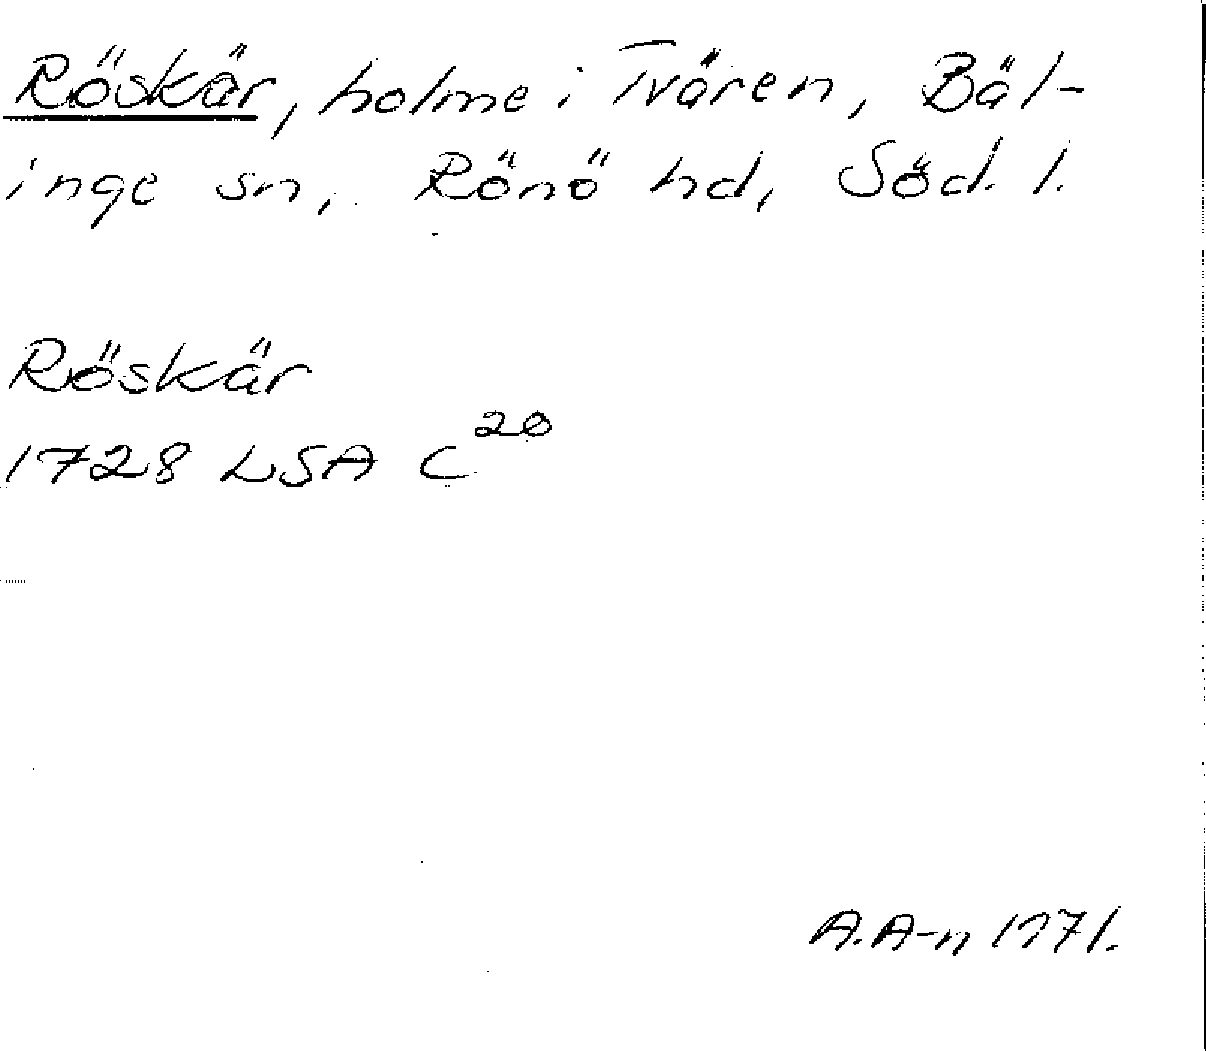 Röskär, holme i Tvären, Bäl-
inge sn, Rönö hd, Söd. l.
Röskär
1728 LSA C²⁰
A.A-n 1971.